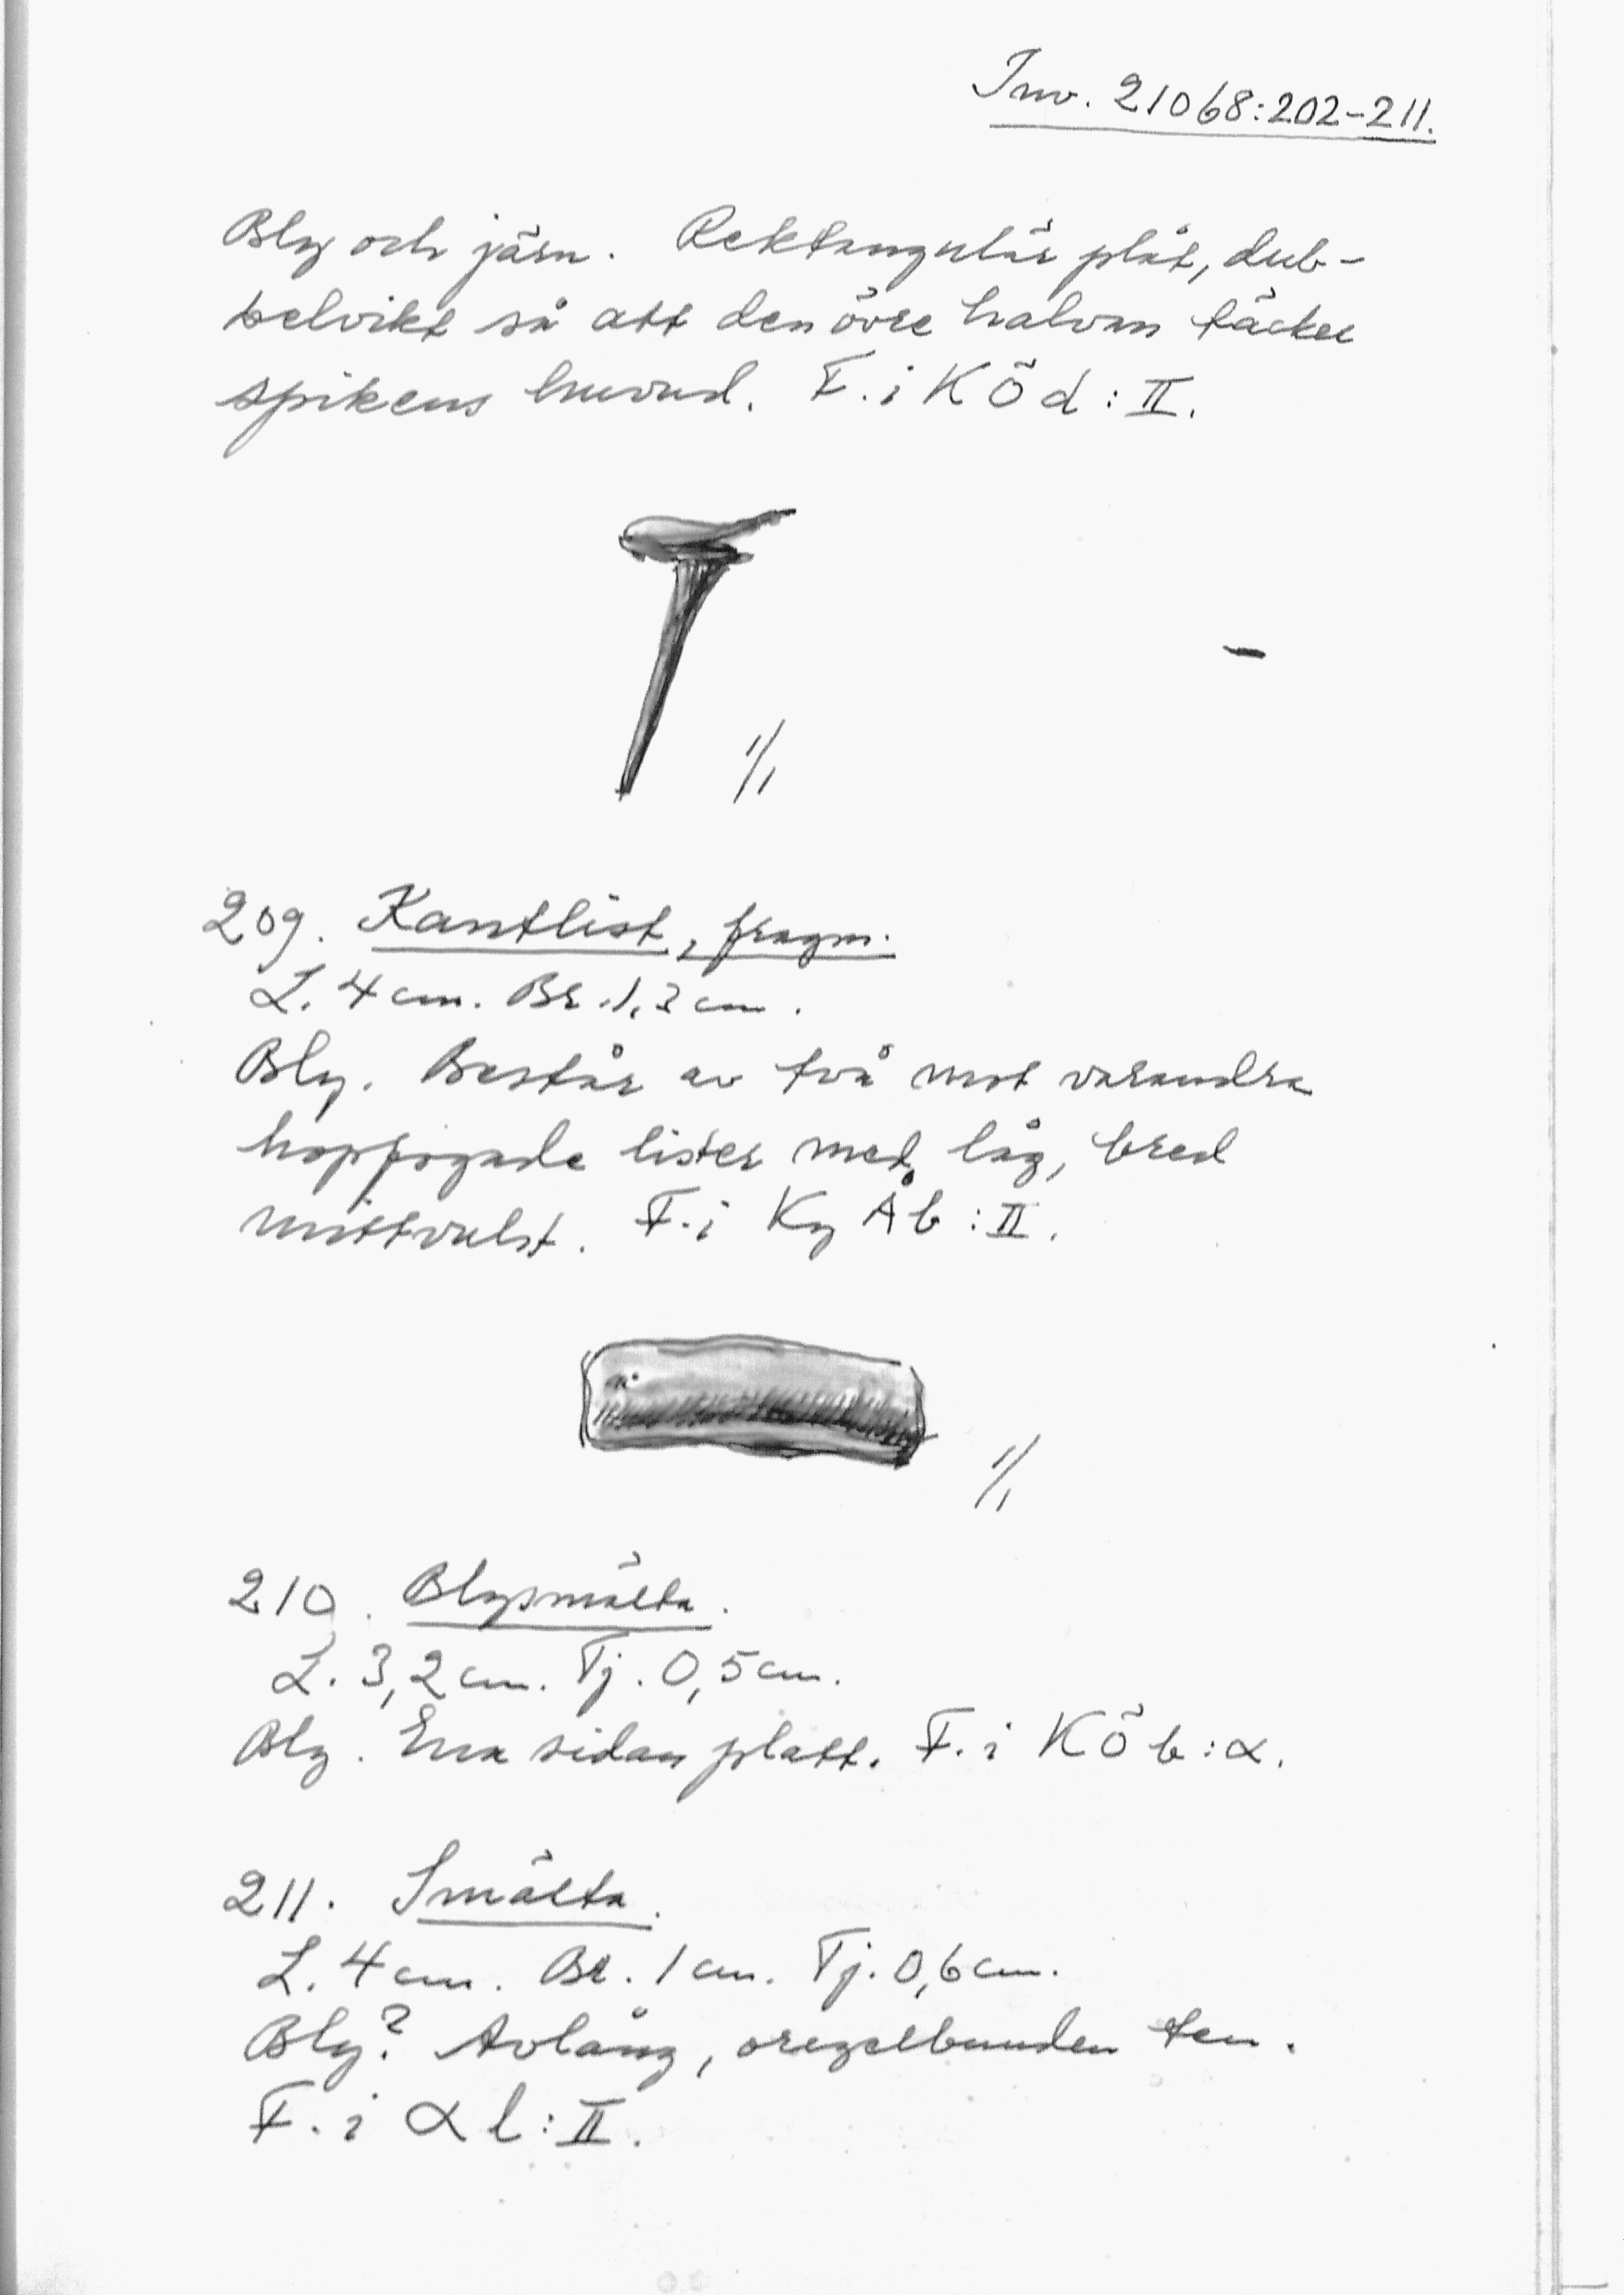 Inv. 21068:202-211.
Bly och järn. Rektangulär plåt, dub-
belvikt så att den övre halvan täcker
spikens huvud. F. i KÖd:II.
1/1
209. Kantlist, fragm.
L. 4 cm. Br. 1,3 cm.
Bly. Består av två mot varandra
hopfogade lister med låg, bred
mittvulst. F. i Ky Åb:II.
1/1
210. Blysmälta.
L. 3,2 cm. Tj. 0,5 cm.
Bly. Ena sidan platt. F. i KÖb:α.
211. Smälta.
L. 4 cm. Br. 1 cm. Tj. 0,6 cm.
Bly? Avlång, oregelbunden ten.
F. i αl:II.